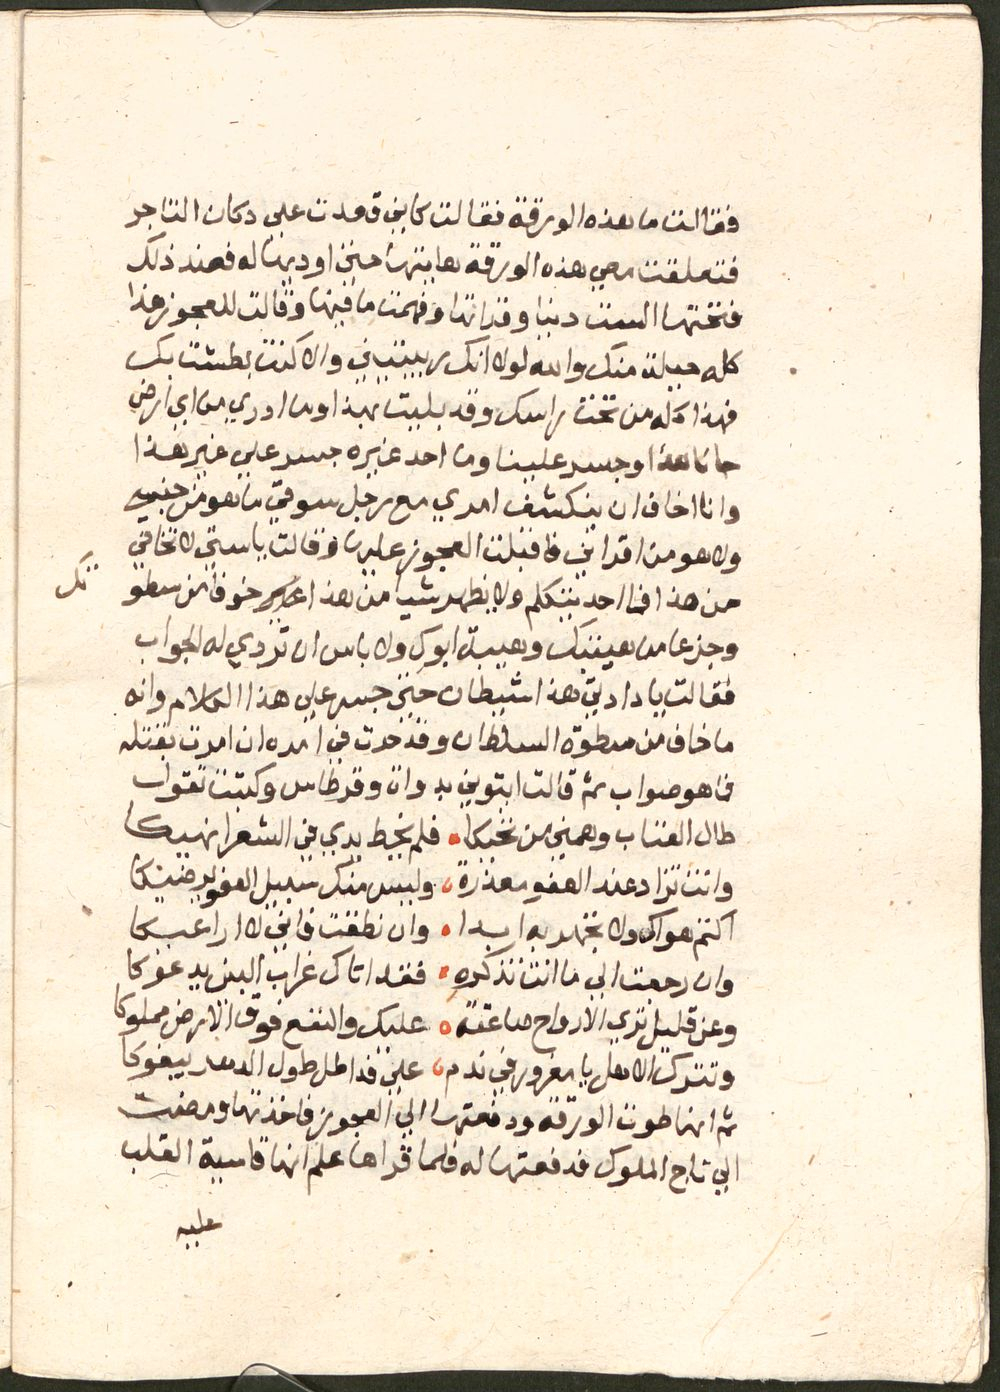 فقالت ما هذه الورقة فقالت كاني قعدت علي دكان التاجر
فتعلقت معي هذه الورقة هاتيها حتي اوديها له فعند ذلك
فتحتها الست دنيا وقراتها وفهمت ما فيها وقالت للعجوز هذا
كله حيلة منك والله لولا انك ربيتيني والا كنت بطشت بك
فهذا كله من تحت راسك وقد بليت بهذا وما ادري من اي ارض
جانا هذا وجسر علينا وما احد غيره جسر علي غير هذا
وانا اخاف ان ينكشف امري مع رجل سوقي ما هو من جنسي
ولا هو من اقراني فاقبلت العجوز عليها وقالت ياستي لا تخافي
من هذا فما احد يتكلم ولا يظهر شيا من هذا خوفا من سطو
تك
وجزعا من هيبتك وهيبة ابوك ولا باس ان تردي له الجواب
فقالت يا دادتي هذا شيطان حتي جسر علي هذا الكلام وانه
ما خاف من سطوة السلطان وقد حرت في امره ان امرت بقتله
فما هو صواب ثم قالت ايتوني بدواة وقرطاس وكتبت تقول
طال العتاب وهمني من تحتكا فلم بخط يدي في الشعر انهيكا
وانت تزاد عند العفو معذرة وليس منك سبيل العفو يرضيكا
اكتم هواك ولا تجهر به ابدا وان نطقت فاني لا اراعيكا
وان رجعت الي ما انت تذكره فقد اتاك غراب البين يدعوكا
وعن قليل تري الارواح صاعقة عليك والنقع فوق الارض مملوكا
وتترك الاهل يا مغرور في ندم علي فدا طل طول الدهر يبغوكا
ثم انها طوت الورقة ودفعتها الي العجوز فاخذتها ومضت
الي تاج الملوك فدفعتها له فلما قراها علم انها قاسية القلب
عليه